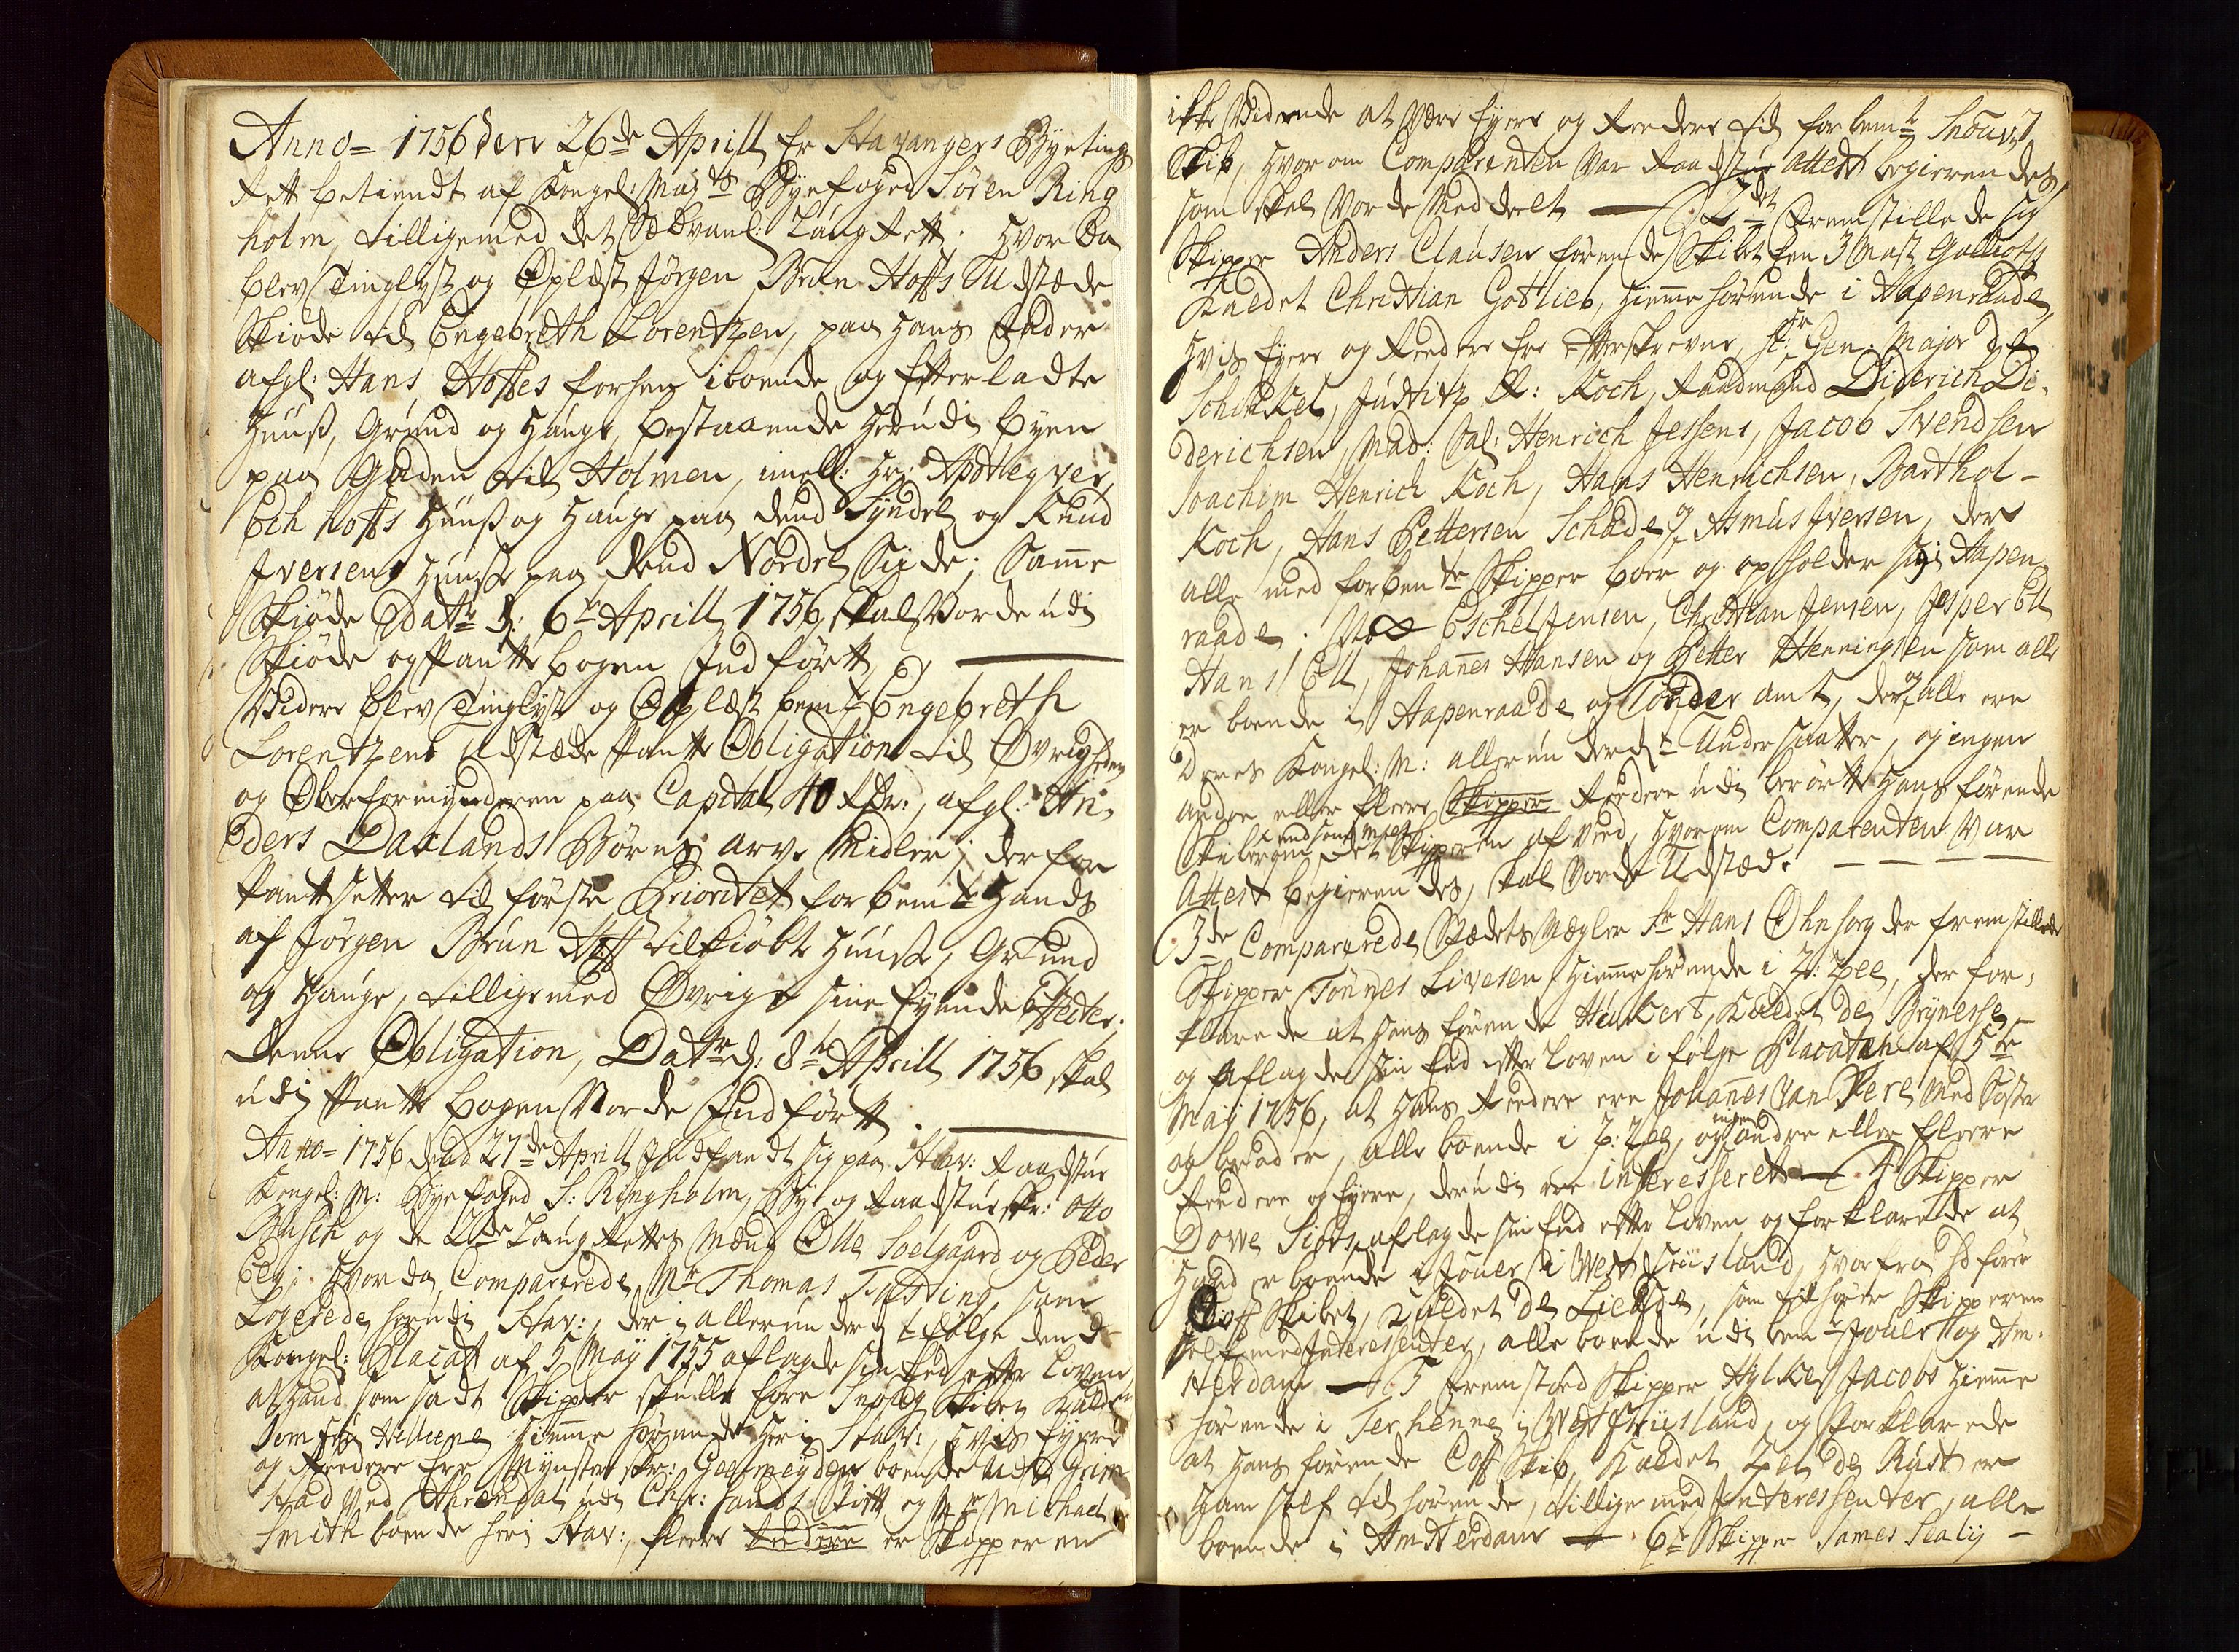 Anno = 1756 den 26de Aprill Er Stavangers Byetings
Rett betiendt af Kongel: May:ts Byefoged Søren Ring
holm, tilligemed det Sædvanl: Laug Rett; Hvor da
blev Tinglyst og Oplæst Jørgen Brun Hoffs Udstæde
Skiøde til Engebreth Lorentzen, paa Hans Fader
afgl: Hans Hoffes forhen iboende og Efterladte
Huuß, Grund og Hauge, bestaaende herudi Byen
paa Gaden til Holmen, imell: Hr: Apotteqver
Ech hoffs Huuß og Hauge paa dend Syndre og Knud
Iversens Huuß paa dend Nordre Siide; Samme
Skiøde Dat: d: 6te Aprill 1756, skal Vorde udi
Skiøde og Pantte bogen Indført
Videre blev Tinglyst og Oplæst bemte Engebreth
Lorentzens Udstæde Pantte Obligation til Øvrigheden
og Oberformynderen paa Capital 40 Rdr:, afgl: An-
ders Daxlands Børns arve Midler; derfor
Pantsetter til første Prioritet forbemte Hands
af Jørgen Brun Hoff tilkiøbte Huuß, Grund
og Hauge, tilligemed Øvrige sine Eyende Effecter;
denne Obligation, Datr d: 8de Aprill 1756 skal
udi Pantte bogen Vorde Indført.
Anno = 1756 dend 27de Aprill Indfandt sig paa Stav: Raadstue
Kongel: M: Byefoged S: Ringholm, By og Raadstueskr: Otto
Busch og de 2de Laug Rettes Mænd Olle Soelgaard og Peder
Eeg; Hvor da Comparerede Mr Thomas Tusting, som
Logerede herudi Stav:, der i allerunderdt følge dend
Kongel: Placat af 5 May 1755 aflagde sin Eed efter Loven,
at Hand som sadt Skipper skulle føre Snoug Skibet Kaldet
Jomfru Helliene hiemme hørende her i Stav:, hvis Eyere
og Reedere Ere Mynsterskr: Geelmeyden boende ude Grim
stad ved Ahrendal udi Chr: sands Stift og Mr Michael
Smith boende her i Stav:, fleere Reedere er Skipperen
ikke Vidende at Være Eyere og Reedere til forbemte Snouv
Skib, hvorom Comparenten Var Raadstue Attest begierendes,
som skal Vorde Meddeelt — 2det Fremstillede sig
Skipper Anders Clausen førende Skibet En 3 Mast Galliott
Kaldet Christian Gotlieb, hiemmehørende i Hapenraade,
Hvis Eyere og Reedere Ere Efterskrevne, Hr: Gen: Major de
Schinkel, Justitz R: Koch, Raadmand Diderich Di-
derichsen, Mad: Sal: Henrich Jessens, Jacob Svendsen
Joachim Henrich Koch, Hans Henrichsen, Barthol-
Koch, Hans Pettersen Schade og Asmus Iversen, der
alle med forbemte Skipper boer og opholder sig i Hapen-
raade; Eschel Jensen, Christian Jensen, Jesper Ell
Hans Ell, Johannes Hansen og Petter Henningsen som alle
er boende i Hapenraade og Tønder Amt, der og alle ere
Deres Kongel: M: allerunderdte Undersaatter, og ingen
andre eller fleere Skipper Reedere udi berørte Hans førende
Skib end som Meld Skipperen af Veed, hvorom Comparenten Var
Attest begierendes, skal Vorde Udstæd.
3de Comparerede Stædets Mægler Sr Hans Ohnsorg der fremstillede
Skipper Tønnes Livesen hiemmehørende i Z: Zee, der for-
klarede at Hans førende Hukert, Kaldet De Brynesse,
og aflagde sin Eed efter Loven i følge Placaten af 5te
May 1756, at Hans Reedere ere Johannes van Pere Med Søster
og broder, alle boende i Z: Zee, og ingen andre eller fleere
Reedere og Eyere, derudi ere interesseret — 4 Skipper
Dowe Siors, aflagde sin Eed efter Loven og forklarede at
Hand er boende i Jouer i West Friisland, hvorfra Hd fører
Coff Skibet, Kaldet De Liefde, som tilhører Skipperen
self med Interessenter, alle boende udi bemte Jouer og Am-
sterdam — 5 Fremstoed Skipper Hylke Jacobs hiemme
hørende i Terhenne i West Friisland, og Forklarede
at Hans førende Coff Skib, Kaldet Zee de Rust er
Ham self tilhørende, tillige med Interessenter, alle
boende i Amsterdam — 6te Skipper James Sealy -